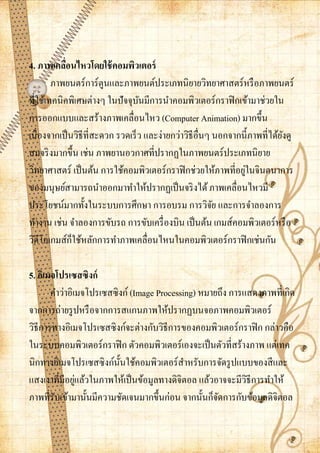 4. ภาพเคลื่อนไหวโดยใช้คอมพิวเตอร์
ภาพยนตร์การ์ตูนและภาพยนต์ประเภทนิยายวิทยาศาสตร์หรือภาพยนตร์
ที่ใช้เทคนิคพิเศษต่างๆ ในปัจจุบันมีการนำคอมพิวเตอร์กราฟิกเข้ามาช่วยใน
การออกแบบและสร้างภาพเคลื่อนไหว (Computer Animation) มากขึ้น
เนื่องจากเป็นวิธีที่สะดวก รวดเร็ว และง่ายกว่าวิธีอื่นๆ นอกจากนี้ภาพที่ได้ยังดู
สมจริงมากขึ้น เช่น ภาพยานอวกาศที่ปรากฏในภาพยนตร์ประเภทนิยาย
วิทยาศาสตร์ เป็นต้น การใช้คอมพิวเตอร์กราฟิกช่วยให้ภาพที่อยู่ในจินตนาการ
ของมนุษย์สามารถนำออกมาทำให้ปรากฏเป็นจริงได้ ภาพเคลื่อนไหวมี
ประโยชน์มากทั้งในระบบการศึกษา การอบรม การวิจัย และการจำลองการ
ทำงาน เช่น จำลองการขับรถ การขับเครื่องบิน เป็นต้น เกมส์คอมพิวเตอร์หรือ
วิดีโอเกมส์ก็ใช้หลักการทำภาพเคลื่อนไหนในคอมพิวเตอร์กราฟิกเช่นกัน
5. อิเมจโปรเซสซิงก์
คำว่าอิเมจโปรเซสซิงก์ (Image Processing) หมายถึง การแสดงภาพที่เกิด
จากการถ่ายรูปหรือจากการสแกนภาพให้ปรากฏบนจอภาพคอมพิวเตอร์
วิธีการทางอิเมจโปรเซสซิงก์จะต่างกับวิธีการของคอมพิวเตอร์กราฟิก กล่าวคือ
ในระบบคอมพิวเตอร์กราฟิก ตัวคอมพิวเตอร์เองจะเป็นตัวที่สร้างภาพ แต่เทค
นิกทางอิเมจโปรเซสซิงก์นั้นใช้คอมพิวเตอร์สำหรับการจัดรูปแบบของสีและ
แสงเงาที่มีอยู่แล้วในภาพให้เป็นข้อมูลทางดิจิตอล แล้วอาจจะมีวิธีการทำให้
ภาพที่รับเข้ามานั้นมีความชัดเจนมากขึ้นก่อน จากนั้นก็จัดการกับข้อมูลดิจิตอล